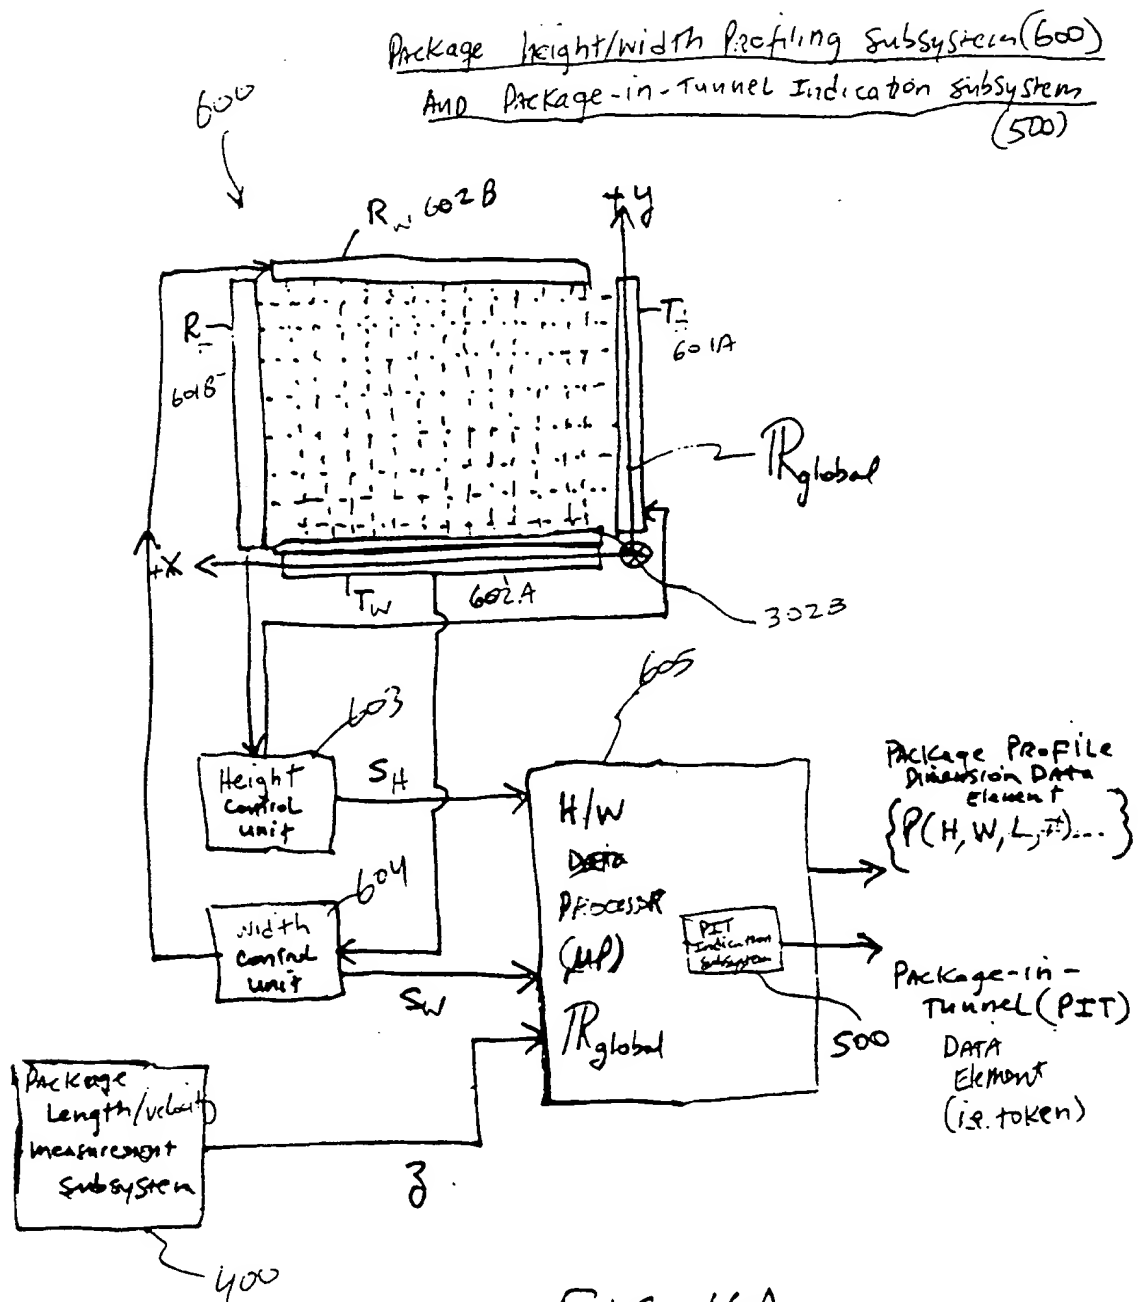 Package Height/Width Profiling Subsystem (600)
AND Package-in-Tunnel Indication Subsystem
(500)
600
R_W 602B
+y
R
601B
T
601A
R_global
+X
T_W
602A
302B
605
603
Height
Control
unit
S_H
604
Width
Control
unit
S_W
H/W
Data
Processor
(μP)
R_global
PIT
Indication
Subsystem
500
Package Profile
Dimension Data
Element
{P(H, W, L, t)...}
Package-in-
Tunnel (PIT)
DATA
Element
(i.e. token)
Package
Length/velocity
measurement
Subsystem
400